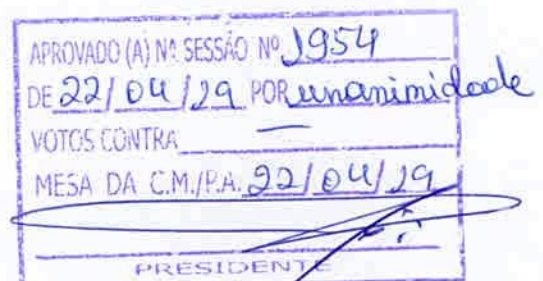 APROVADO (A) Nª SESSÃO Nº 1954
DE 22/04/19 POR unanimidade
VOTOS CONTRA —
MESA DA C.M./P.A. 22/04/19
PRESIDENTE